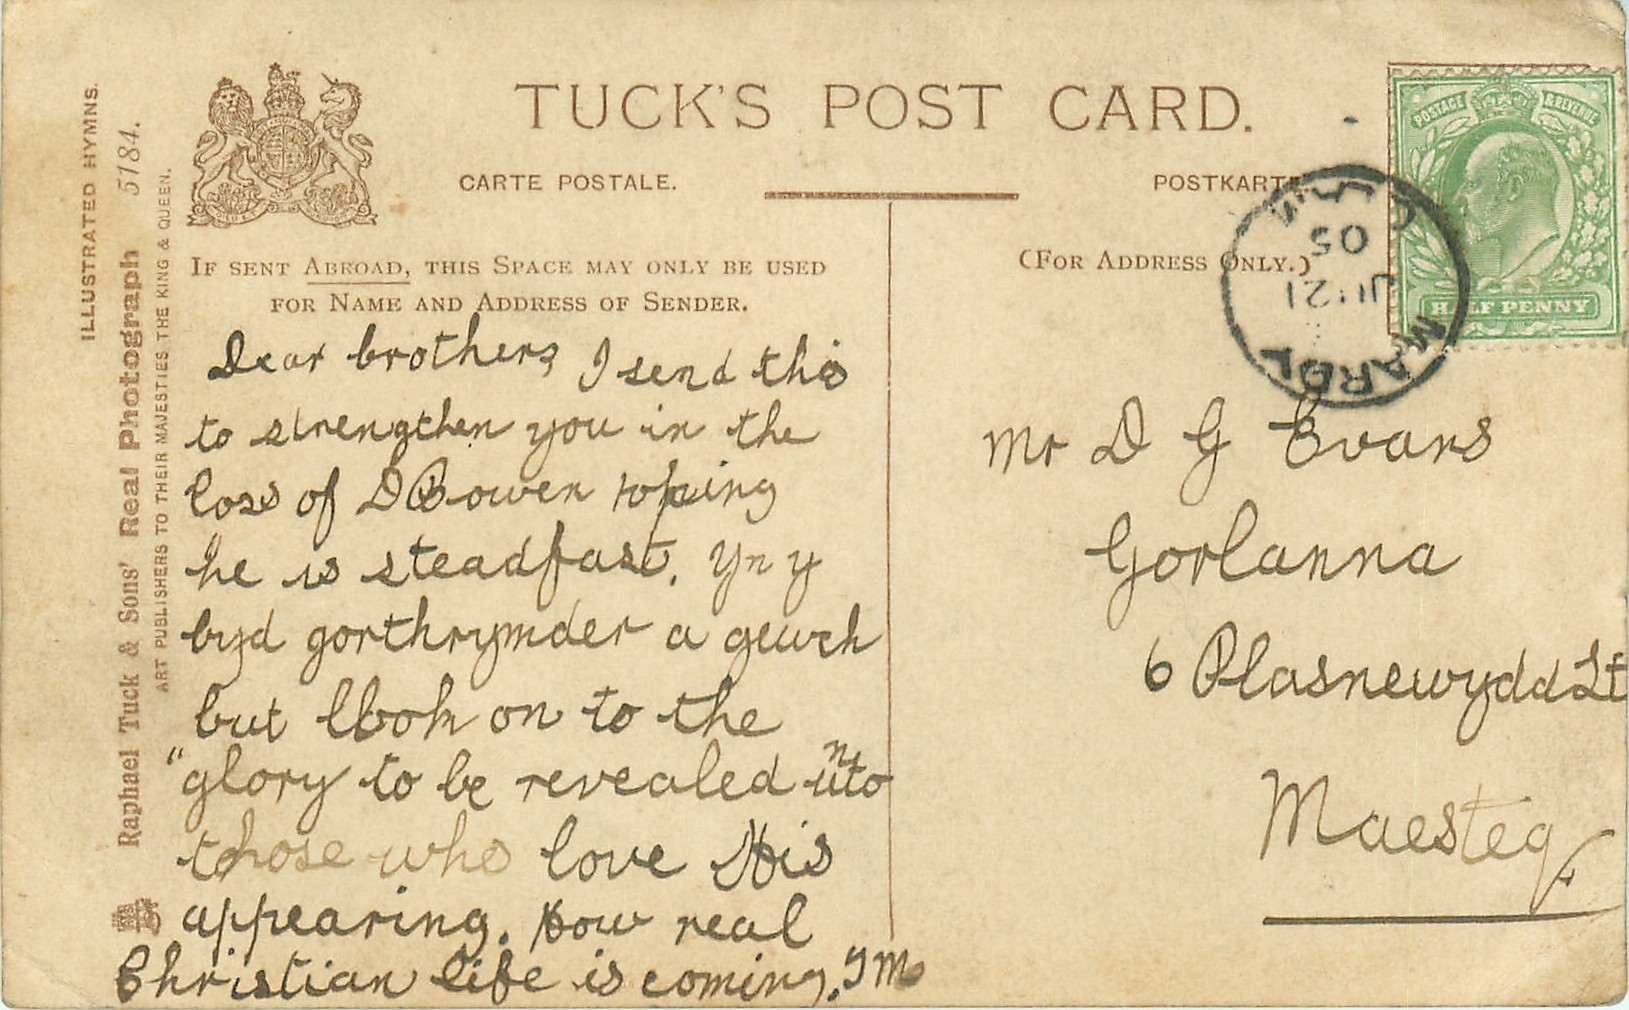 TUCK'S POST CARD.
CARTE POSTALE.
POSTKARTE
(FOR ADDRESS ONLY.)
IF SENT ABROAD, THIS SPACE MAY ONLY BE USED
FOR NAME AND ADDRESS OF SENDER.
ILLUSTRATED HYMNS.
Raphael Tuck & Sons' Real Photograph 5184.
ART PUBLISHERS TO THEIR MAJESTIES THE KING & QUEEN.
POSTAGE & REVENUE
HALF PENNY
MARDY
JU 21
05
Dear brothers, I send this
to strengthen you in the
loss of D Bowen hoping
he is steadfast. Yn y
byd gorthrymder a gewch
but look on to the
"glory to be revealed unto
those who love His
appearing. How real
Christian life is coming. JM
Mr D G Evans
Gorlanna
6 Plasnewydd St
Maesteg